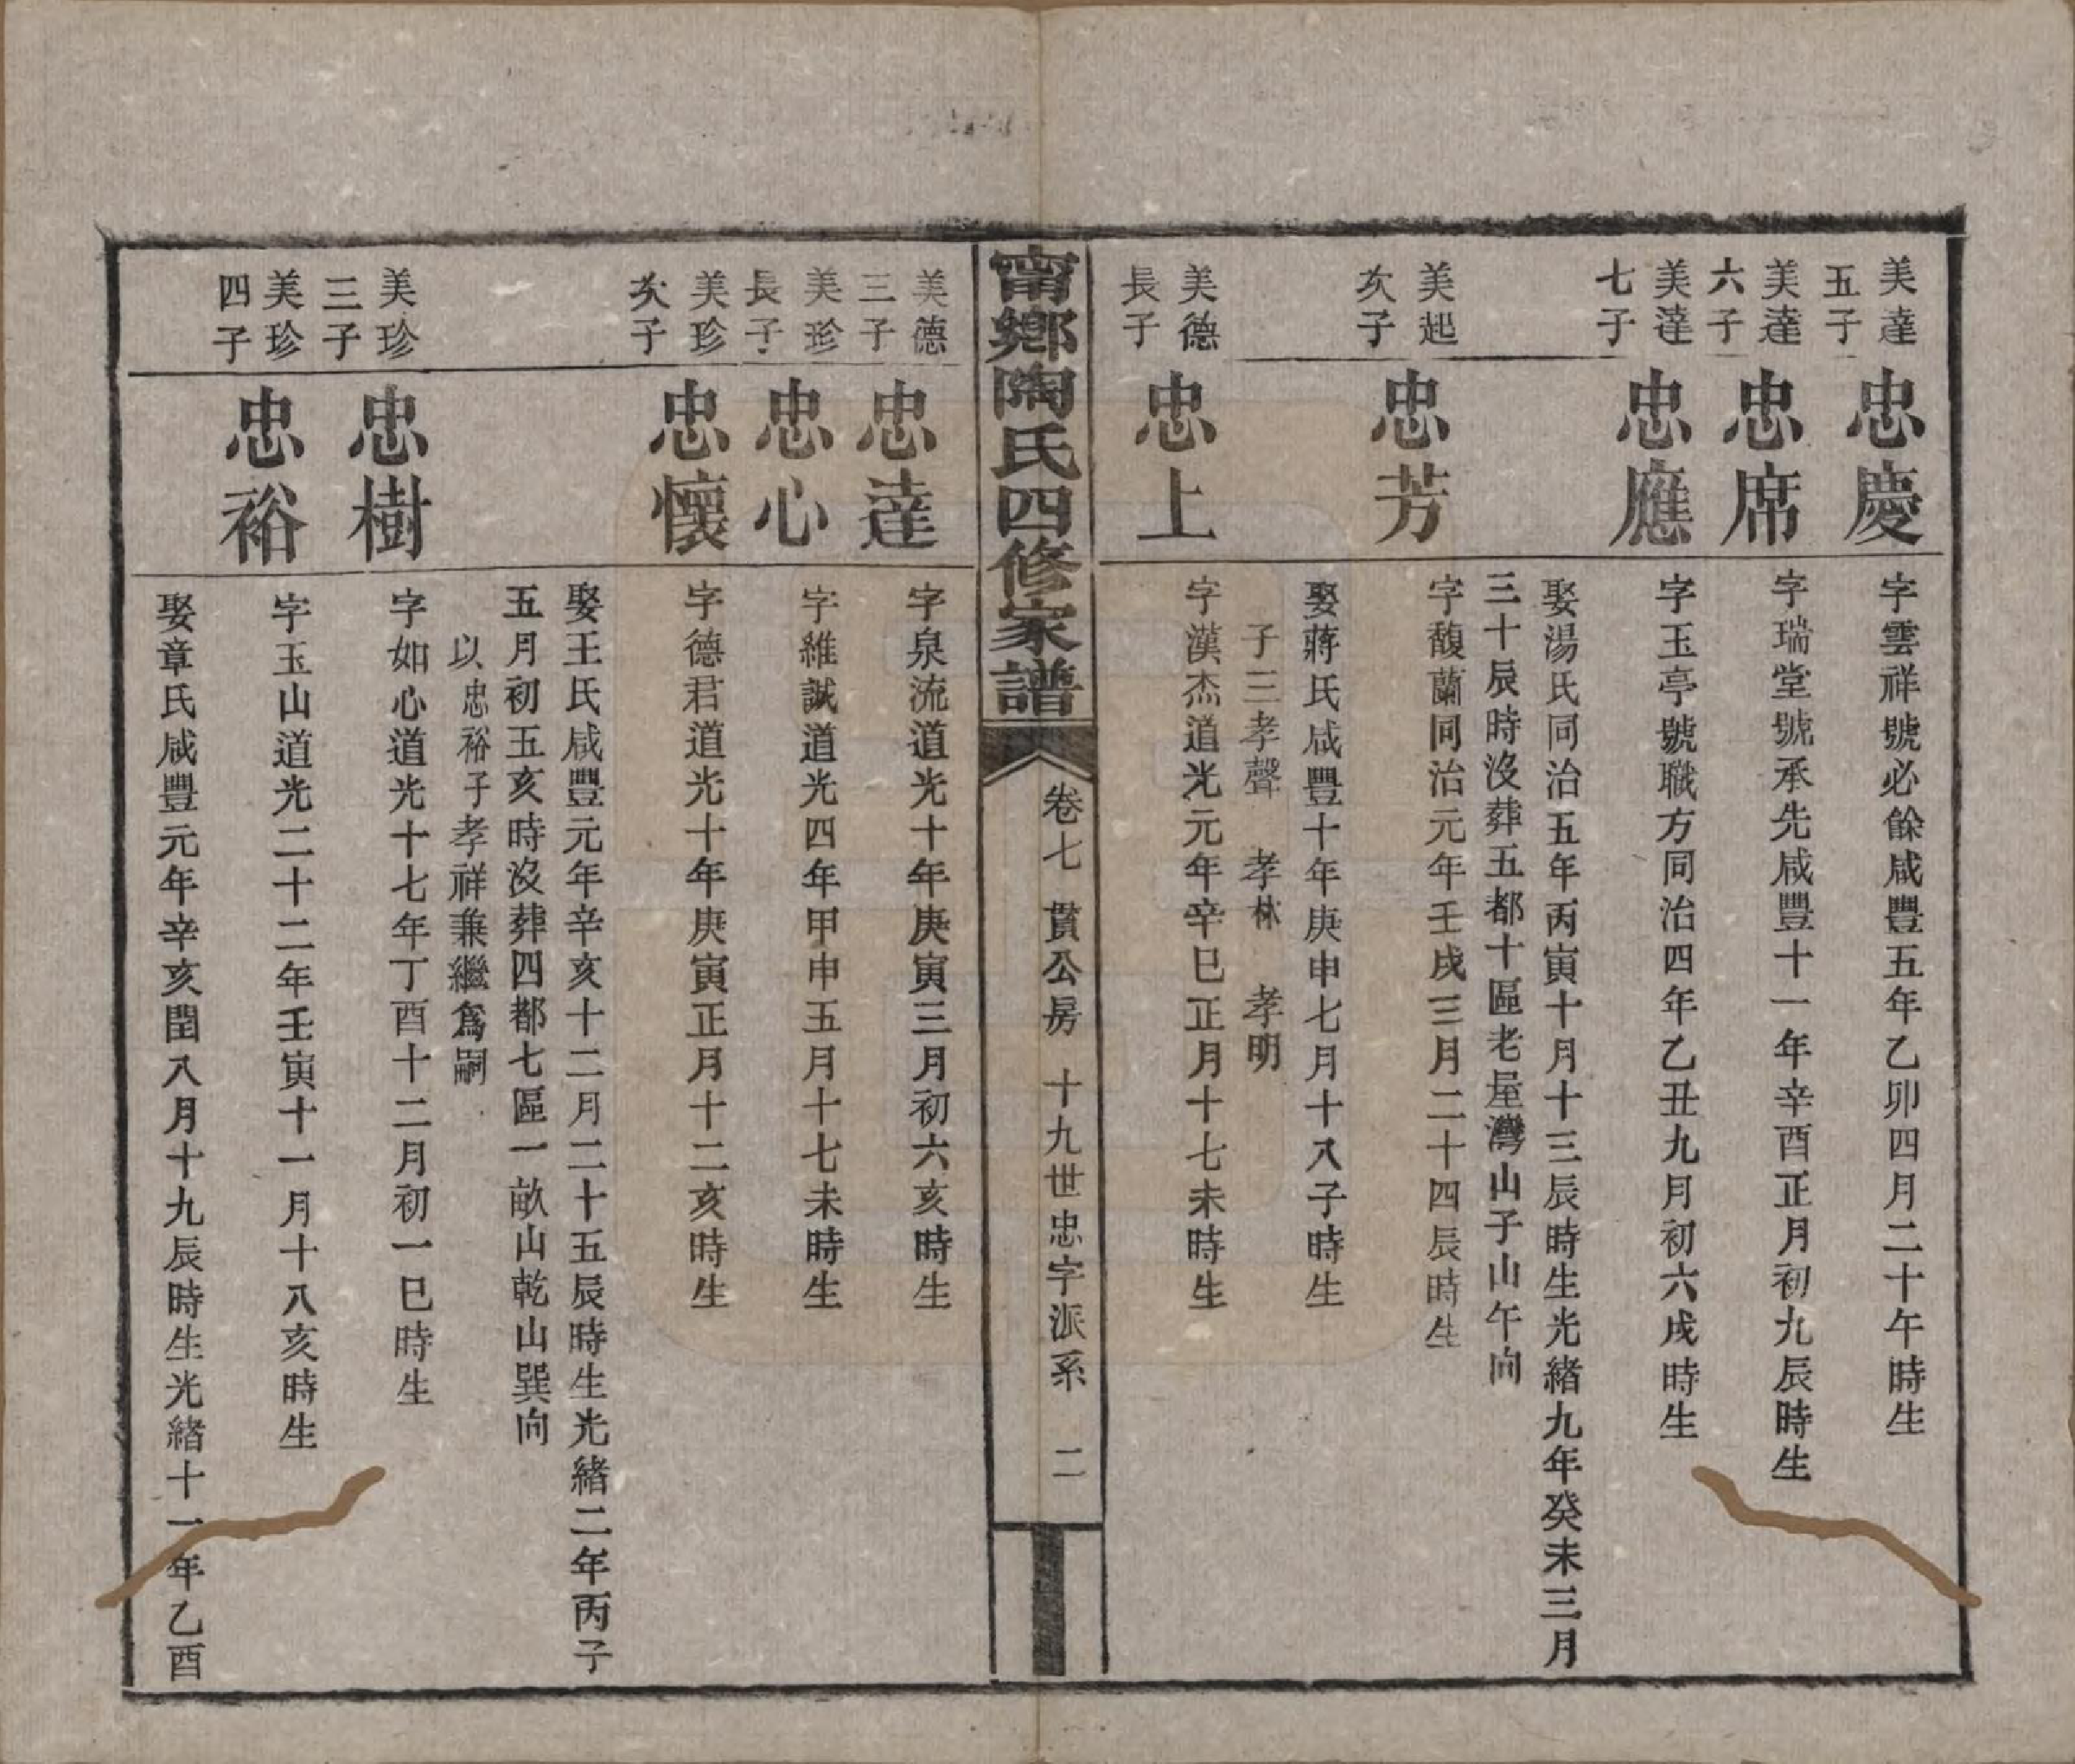 美達
五子
忠慶
字雲祥號必餘咸豐五年乙卯四月二十午時生
美達
六子
忠席
字瑞堂號承先咸豐十一年辛酉正月初九辰時生
美達
七子
忠應
字玉亭號職方同治四年乙丑九月初六戌時生
娶湯氏同治五年丙寅十月十三辰時生光緒九年癸未三月
三十辰時沒葬五都十區老屋灣山子山午向
美起
次子
忠芳
字馥蘭同治元年壬戌三月二十四辰時生
娶蔣氏咸豐十年庚申七月十八子時生
子三孝聲 孝林 孝明
美德
長子
忠上
字漢杰道光元年辛巳正月十七未時生
甯鄉陶氏四修家譜
卷七 貫公房 十九世忠字派系 二
美德
三子
忠達
字泉流道光十年庚寅三月初六亥時生
美珍
長子
忠心
字維誠道光四年甲申五月十七未時生
美珍
次子
忠懷
字德君道光十年庚寅正月十二亥時生
娶王氏咸豐元年辛亥十二月二十五辰時生光緒二年丙子
五月初五亥時沒葬四都七區一畝山乾山巽向
以忠裕子孝祥兼繼爲嗣
美珍
三子
忠樹
字如心道光十七年丁酉十二月初一巳時生
美珍
四子
忠裕
字玉山道光二十二年壬寅十一月十八亥時生
娶章氏咸豐元年辛亥閏八月十九辰時生光緒十一年乙酉